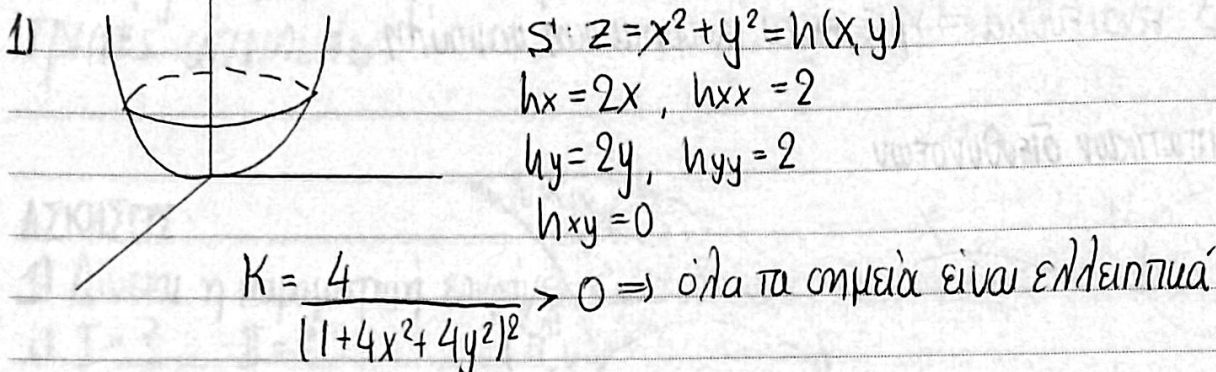 1) S: z = x² + y² = h(x,y)
hx = 2x, hxx = 2
hy = 2y, hyy = 2
hxy = 0
K = 4/(1+4x²+4y²)² > 0 ⇒ όλα τα σημεία είναι ελλειπτικά